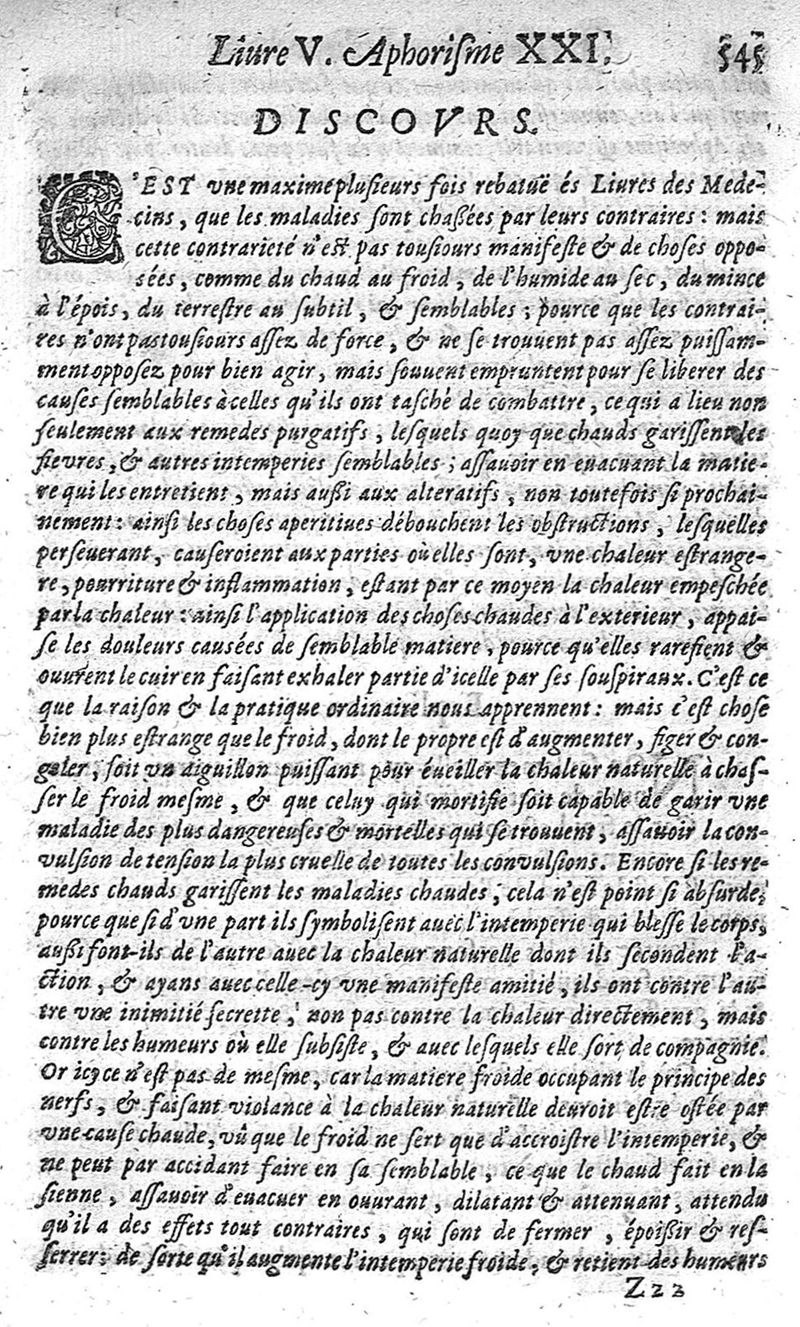 Liure V. Aphoriſme XXI. 545
DISCOVRS.
C'EST vne maxime pluſieurs fois rebatuë és Liures des Mede-
cins, que les maladies ſont chaßées par leurs contraires: mais
cette contrarieté n'eſt pas touſiours manifeſte & de choſes oppo-
sées, comme du chaud au froid, de l'humide au ſec, du mince
à l'épois, du terreſtre au ſubtil, & ſemblables; pource que les contrai-
res n'ont pas touſiours aſſez de force, & ne ſe trouuent pas aſſez puiſſam-
ment oppoſez pour bien agir, mais ſouuent empruntent pour ſe liberer des
cauſes ſemblables à celles qu'ils ont taſché de combattre, ce qui a lieu non
ſeulement aux remedes purgatifs, leſquels quoy que chauds gariſſent les
fievres, & autres intemperies ſemblables; aſſauoir en euacuant la matie-
re qui les entretient, mais außi aux alteratifs, non toutefois ſi prochai-
nement: ainſi les choſes aperitiues débouchent les obſtructions, leſquelles
perſeuerant, cauſeroient aux parties où elles ſont, vne chaleur eſtrange-
re, pourriture & inflammation, eſtant par ce moyen la chaleur empeſchée
par la chaleur: ainſi l'application des choſes chaudes à l'exterieur, appai-
ſe les douleurs causées de ſemblable matiere, pource qu'elles rarefient &
ouurent le cuir en faiſant exhaler partie d'icelle par ſes ſouſpiraux. C'eſt ce
que la raiſon & la pratique ordinaire nous apprennent: mais c'eſt choſe
bien plus eſtrange que le froid, dont le propre eſt d'augmenter, figer & con-
geler, ſoit vn aiguillon puiſſant pour éueiller la chaleur naturelle à chaſ-
ſer le froid meſme, & que celuy qui mortifie ſoit capable de garir vne
maladie des plus dangereuſes & mortelles qui ſe trouuent, aſſauoir la con-
vulſion de tenſion la plus cruelle de toutes les conuulſions. Encore ſi les re-
medes chauds gariſſent les maladies chaudes, cela n'eſt point ſi abſurde,
pource que ſi d'vne part ils ſymboliſent auec l'intemperie qui bleſſe le corps,
außi font-ils de l'autre auec la chaleur naturelle dont ils ſecondent l'a-
ction, & ayans auec celle-cy vne manifeſte amitié, ils ont contre l'au-
tre vne inimitié ſecrette, non pas contre la chaleur directement, mais
contre les humeurs où elle ſubſiſte, & auec leſquels elle ſort de compagnie.
Or icy ce n'eſt pas de meſme, car la matiere froide occupant le principe des
nerfs, & faiſant violance à la chaleur naturelle deuroit eſtre oſtée par
vne cauſe chaude, vû que le froid ne ſert que d'accroiſtre l'intemperie, &
ne peut par accidant faire en ſa ſemblable, ce que le chaud fait en la
ſienne, aſſauoir d'euacuer en ouurant, dilatant & attenuant, attendu
qu'il a des effets tout contraires, qui ſont de fermer, époißir & reſ-
ſerrer: de ſorte qu'il augmente l'intemperie froide, & retient des humeurs
Zzz